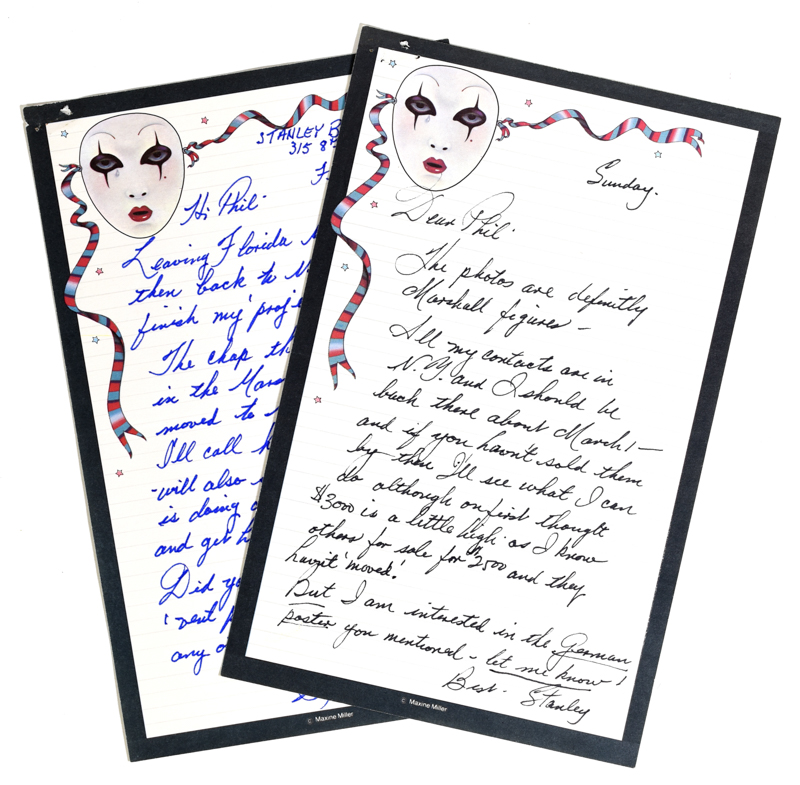 STANLEY B
315 8
Hi Phil-
Leaving Florida
then back to
finish my proje
The chap th
in the Mars
moved to
I'll call h
-will also
is doing
and get
Did yo
'vent
any o
© Maxine Miller
Sunday.
Dear Phil-
The photos are definitly
Marshall figures -
All my contacts are in
N.Y. and I should be
back there about March 1 -
and if you havn't sold them
by then I'll see what I can
do although on first thought
$3000 is a little high as I know
others for sale for $2500 and they
havn't 'moved'!
But I am interested in the German
poster you mentioned - let me know!
Best - Stanley
© Maxine Miller